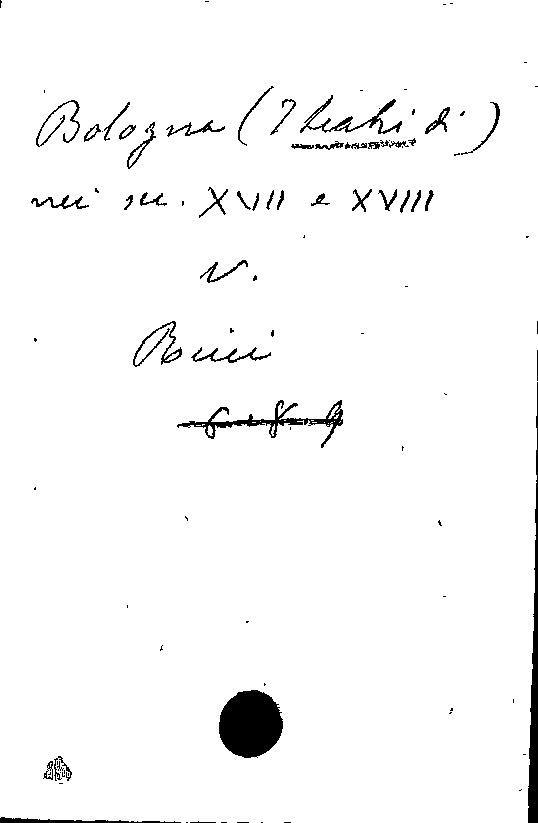 Bologna (I teatri di)
nei sec. XVII e XVIII
v.
Ricci